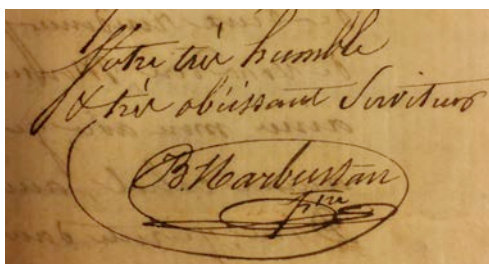 Votre très humble
& très obéissant Serviteur
B. Harbustan
ptre